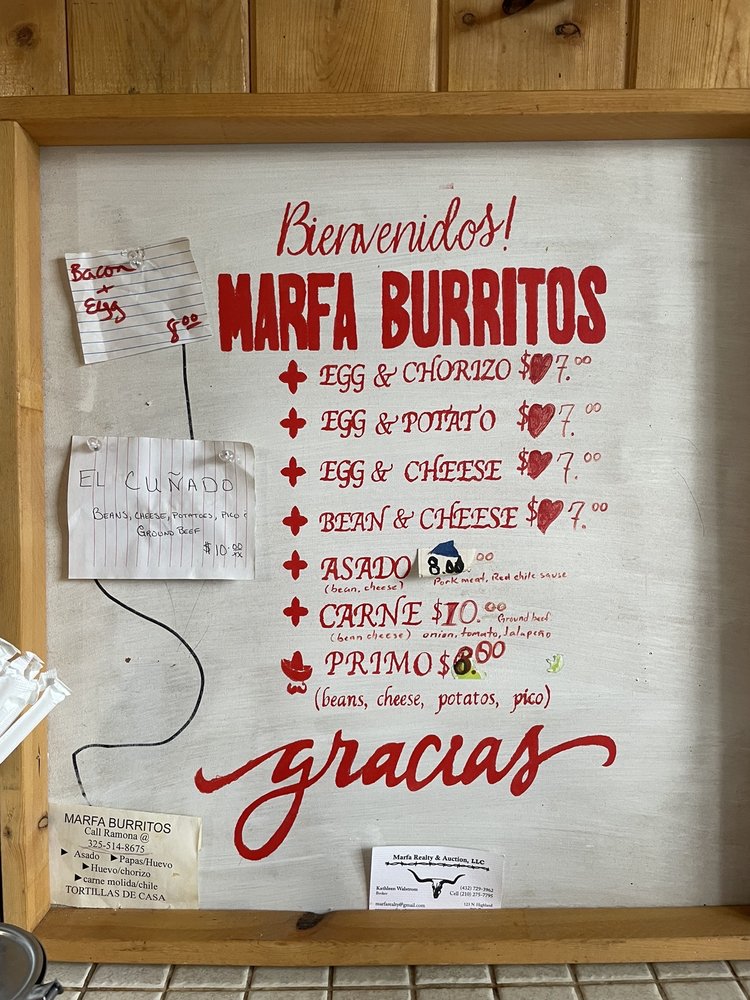 Bienvenidos!
MARFA BURRITOS
EGG & CHORIZO $ 7.00
EGG & POTATO $ 7.00
EGG & CHEESE $ 7.00
BEAN & CHEESE $ 7.00
ASADO 8.00 00
(bean, cheese) Pork meat, Red chile sause
CARNE $10.00 Ground beef
(bean cheese) onion, tomato, Jalapeño
PRIMO $8.00
(beans, cheese, potatos, pico)
gracias
Bacon
+
Egg
8.00
EL CUÑADO
BEANS, CHEESE, POTATOES, PICO
GROUND BEEF
$10.00
MARFA BURRITOS
Call Ramona @
325-514-8675
Asado Papas/Huevo
Huevo/chorizo
carne molida/chile
TORTILLAS DE CASA
Marfa Realty & Auction, LLC
Kathleen Walstrom (432) 729-3962
Broker Cell (210) 275-7795
marfarealty@gmail.com 123 N Highland